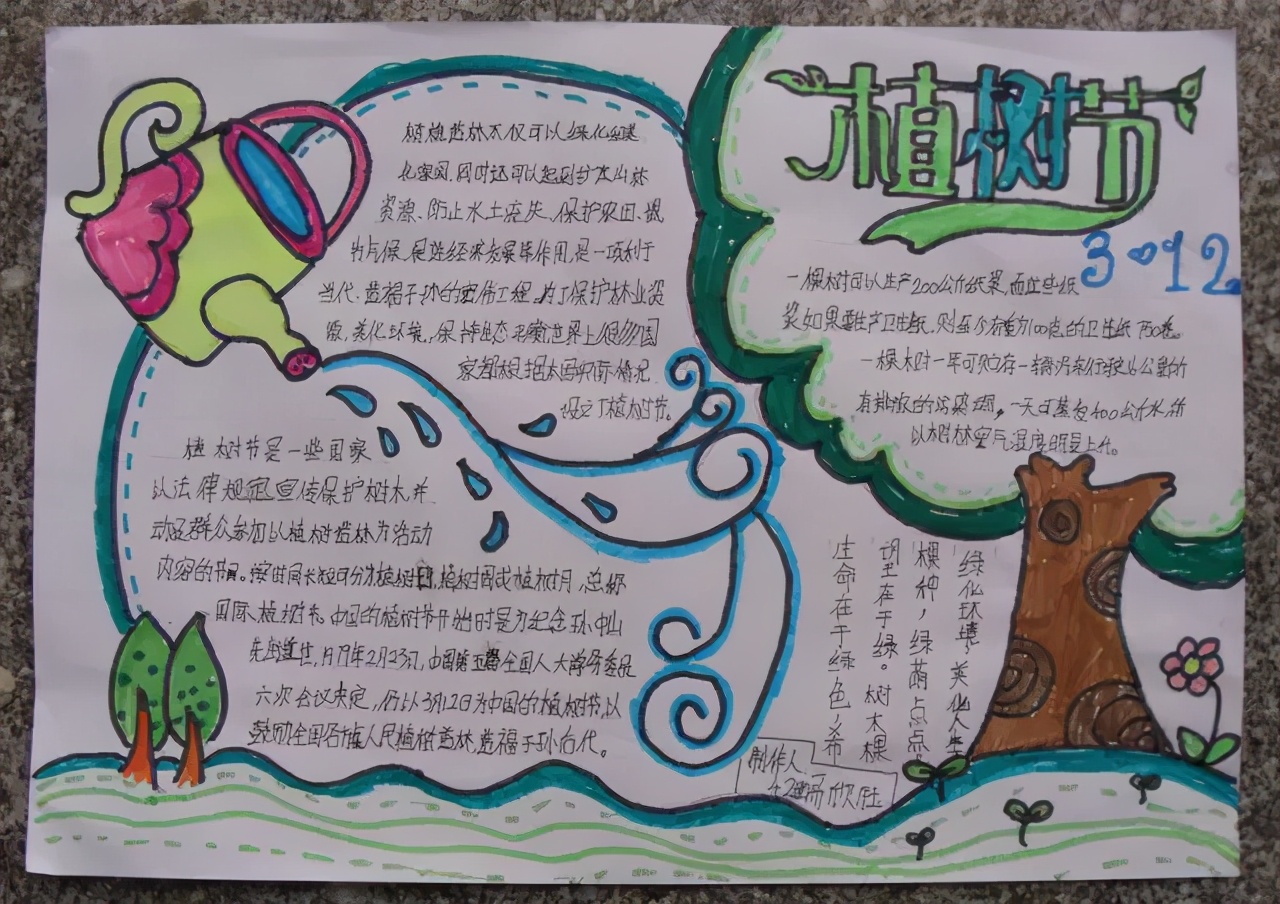 植树节
3 12
植树造林不仅可以绿化和美
化家园,同时还可以起到扩大山林
资源、防止水土流失、保护农田、调
节气候、促进经济发展等作用,是一项利于
当代、造福子孙的宏伟工程,为了保护林业资
源、美化环境、保持生态平衡,世界上很多国
家都根据本国实际情况
设立了植树节。
植树节是一些国家
以法律规定宣传保护树木,并
动员群众参加以植树造林为活动
内容的节日。按时间长短可分为植树日、植树周或植树月,总称
国际植树节。中国的植树节开始时是为纪念孙中山
先生逝世,
六次会议决定,仍以3月12日为中国的植树节,以
鼓励全国各族人民植树造林,造福子孙后代。
一棵树可以生产200公斤纸浆,而这些纸
浆如果要生产卫生纸,则至少有重为100克的卫生纸750卷。
一棵木树一年可贮存一辆汽车行驶16公里的
有排放的污染烟,一天可蒸发400公斤水,所
以树林空气湿度明显上升。
绿化环境,美化人生
棵种,绿荫点点
望在于绿。树木棵
生命在于绿色,希
制作人